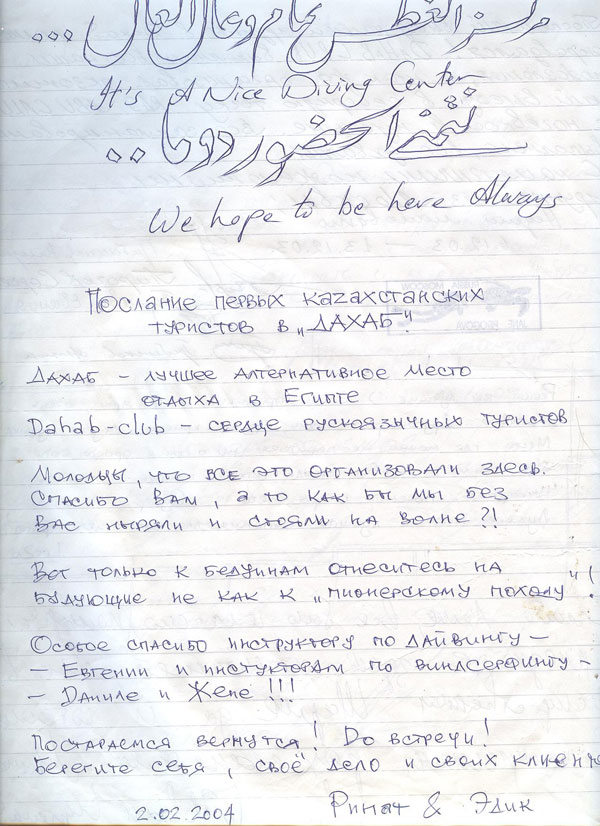 مركز الغطس عام وعال العال ...
It's A Nice Diving Center
نتمنى الحضور دوما ..
We hope to be here Always
Послание первых казахстанских
туристов в „ДАХАБ"!
Дахаб – лучшее альтернативное место
отдыха в Египте
Dahab-club – сердце рускоязычных туристов
Молодцы, что все это организовали здесь.
Спасибо вам, а то как бы мы без
вас ныряли и стояли на волне?!
Вот только к бедуинам отнеситесь на
будующие не как к „пионерскому походу"!
Особое спасибо инструктору по дайвингу –
– Евгении и инстукторам по виндсерфингу –
– Даниле и Жене!!!
Постараемся вернутся! До встречи!
Берегите себя, своё дело и своих клиенто
2.02.2004 Ринат & Эдик